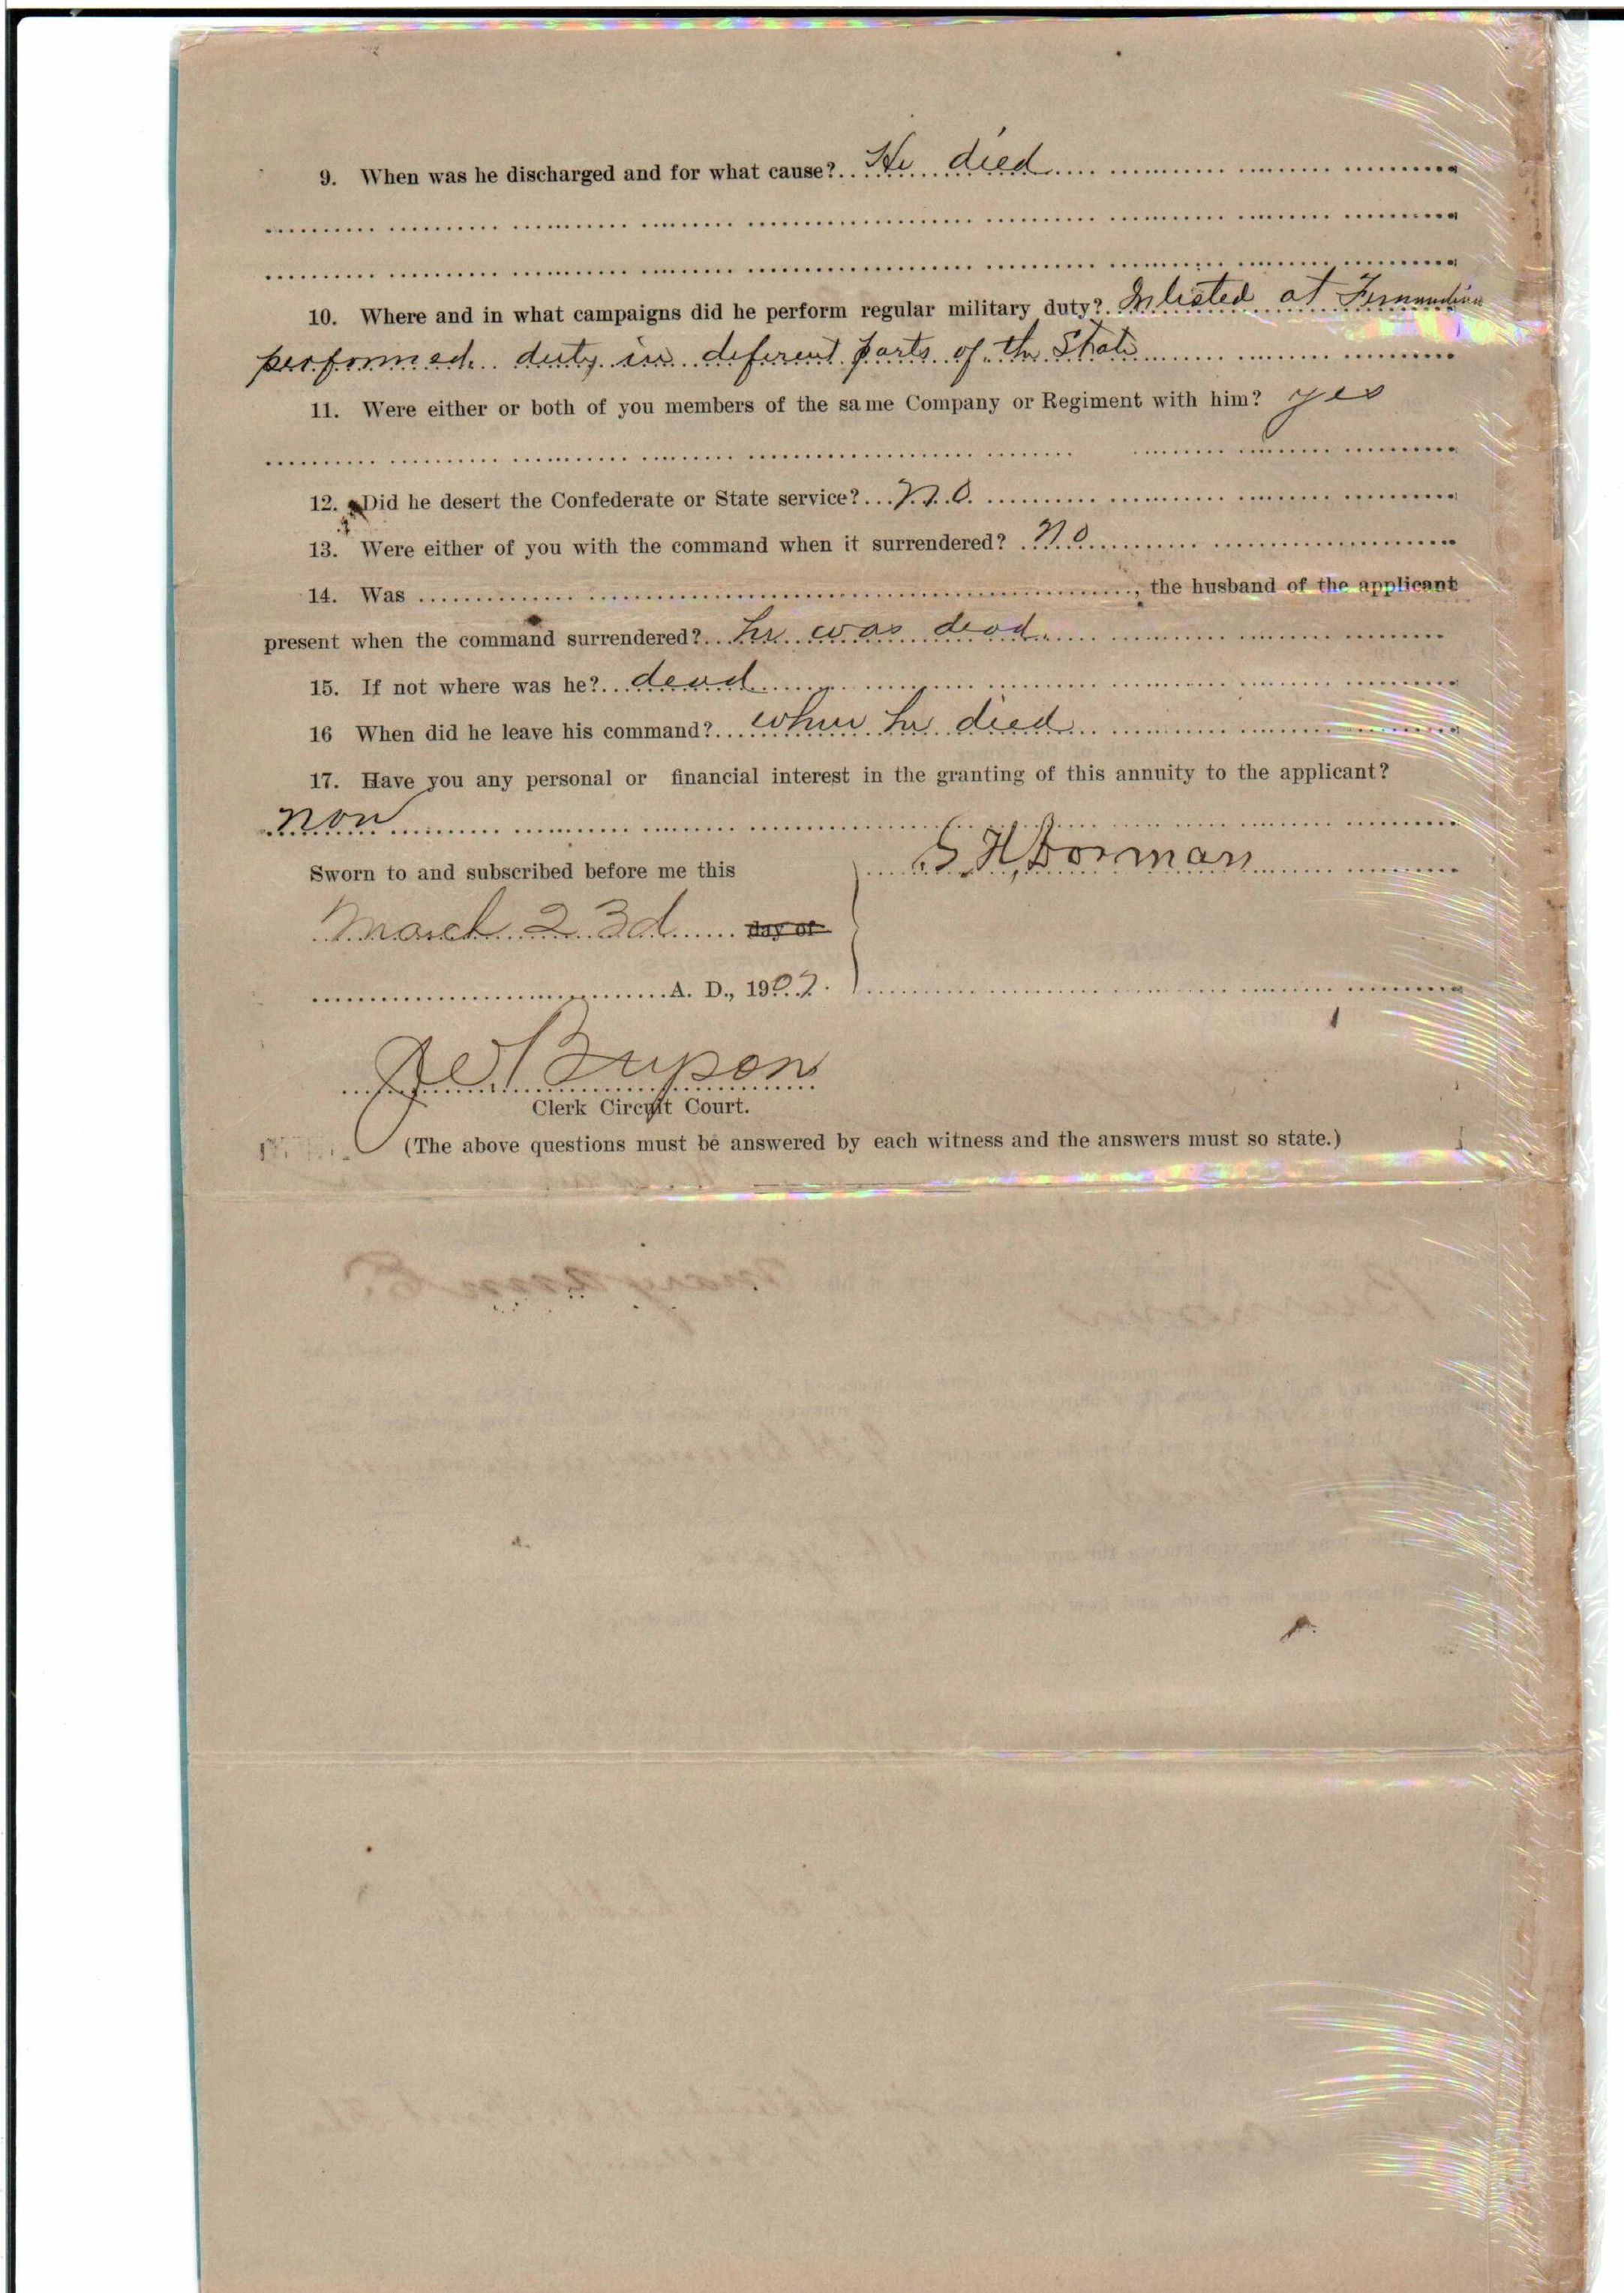 9. When was he discharged and for what cause? He died
10. Where and in what campaigns did he perform regular military duty? Inlisted at Fernandina
performed duty in deferent parts of the State
11. Were either or both of you members of the same Company or Regiment with him? yes
12. Did he desert the Confederate or State service? No
13. Were either of you with the command when it surrendered? No
14. Was , the husband of the applicant
present when the command surrendered? he was dead
15. If not where was he? dead
16 When did he leave his command? when he died
17. Have you any personal or financial interest in the granting of this annuity to the applicant?
non
Sworn to and subscribed before me this
March 23d day of
A. D., 1907.
G H Dorman
Clerk Circuit Court.
(The above questions must be answered by each witness and the answers must so state.)